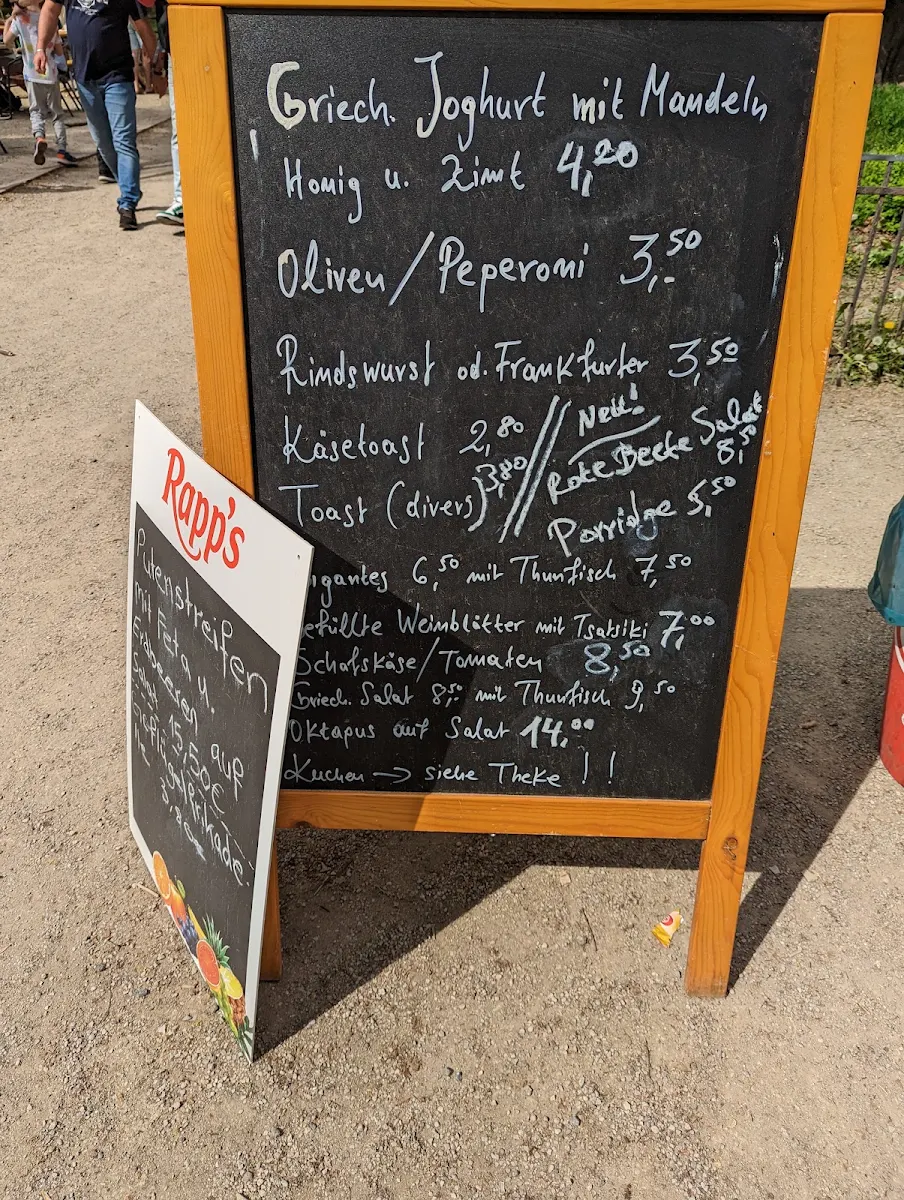 Griech. Joghurt mit Mandeln
Honig u. Zimt 4,20
Oliven/Peperoni 3,50
Rindswurst od. Frankfurter 3,50
Käsetoast 2,80
Neu!
Rote Beete Salat 8,50
Toast (divers) 3,80
Porridge 5,50
igantes 6,50 mit Thunfisch 7,50
efüllte Weinblätter mit Tsatsiki 7,00
Schafskäse/Tomaten 8,50
Griech. Salat 8,50 mit Thunfisch 9,50
Oktapus auf Salat 14,00
Kuchen → siehe Theke !!
Rapp's
Putenstreifen
mit Feta u.
Erdbeeren auf
Salat 15,50€